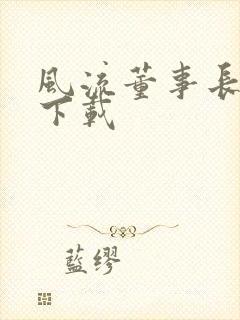 風流董事長
下載
藍繆